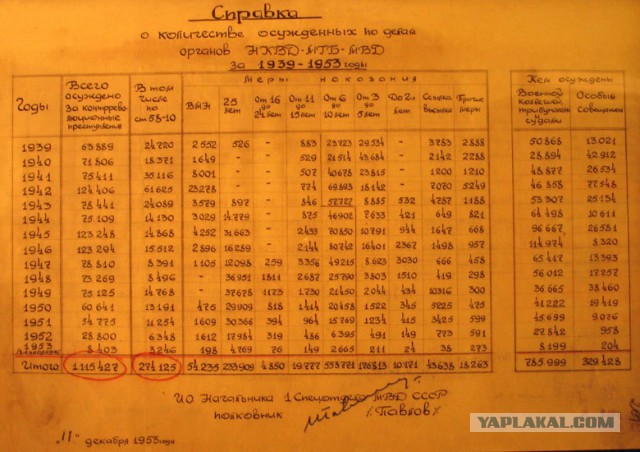 Справка
о количестве осужденных по делам
органов НКВД-МГБ-МВД
за 1939-1953 годы
Годы
Всего осуждено за контрреволюционные преступления
В том числе по ст 58-10
Меры наказания
ВМН
25 лет
От 16 до 24 лет
От 11 до 15 лет
От 6 до 10 лет
От 3 до 5 лет
До 2х лет
Ссылка высылка
Прочие меры
Кем осуждены
Военной коллегией, трибуналом судами
Особым совещанием
1939 63889 24720 2552 526 - 883 23723 29534 - 3783 2888 50.868 13.021
1940 71.806 18.371 1649 - - 529 21514 43684 - 2142 2288 28.894 42.912
1941 75411 35116 8001 - - 507 40678 23815 - 1200 1210 48.877 26.534
1942 124.406 61625 23278 - - 774 69893 18142 - 7070 5249 46.858 77.548
1943 78.441 24089 3579 897 - 846 8885 532 4787 1188 53.307 25.134
1944 75.109 14.130 3029 - 875 46902 7633 421 649 821 64.498 10.611
1945 123.248 14.868 4252 31.663 - 2433 70850 10791 944 1647 668 96.667 26.581
1946 123.294 15.512 2896 16289 - 2144 80742 16401 2367 1498 957 114.974 8.320
1947 78.810 8.391 1105 12098 259 3356 49215 8.623 3030 666 458 65.417 13.393
1948 73.269 8.496 - 36.951 1811 2687 25790 3803 1510 419 298 56.012 17.257
1949 75.125 14.768 - 37678 1173 1730 21450 2044 434 10316 300 36.665 38.460
1950 60.641 13.191 475 29909 818 1414 20458 1522 345 5225 475 41.222 19.419
1951 54.775 11.254 1609 30.366 394 964 15.769 1234 415 3425 599 45.699 9.076
1952 28.800 6348 1612 17984 319 486 6395 491 149 773 591 27.842 958
1953 8.403 3246 198 4769 76 149 2665 211 24 38 273 8.199 204
Итого 1.115.427 274.125 54.235 233909 4.850 19.777 10.171 43638 18.263 785.999 329.428
ИО. Начальника 1 Спецотдела МВД СССР
полковник /Павлов/
„11" декабря 1953 года
YAPLAKAL.COM